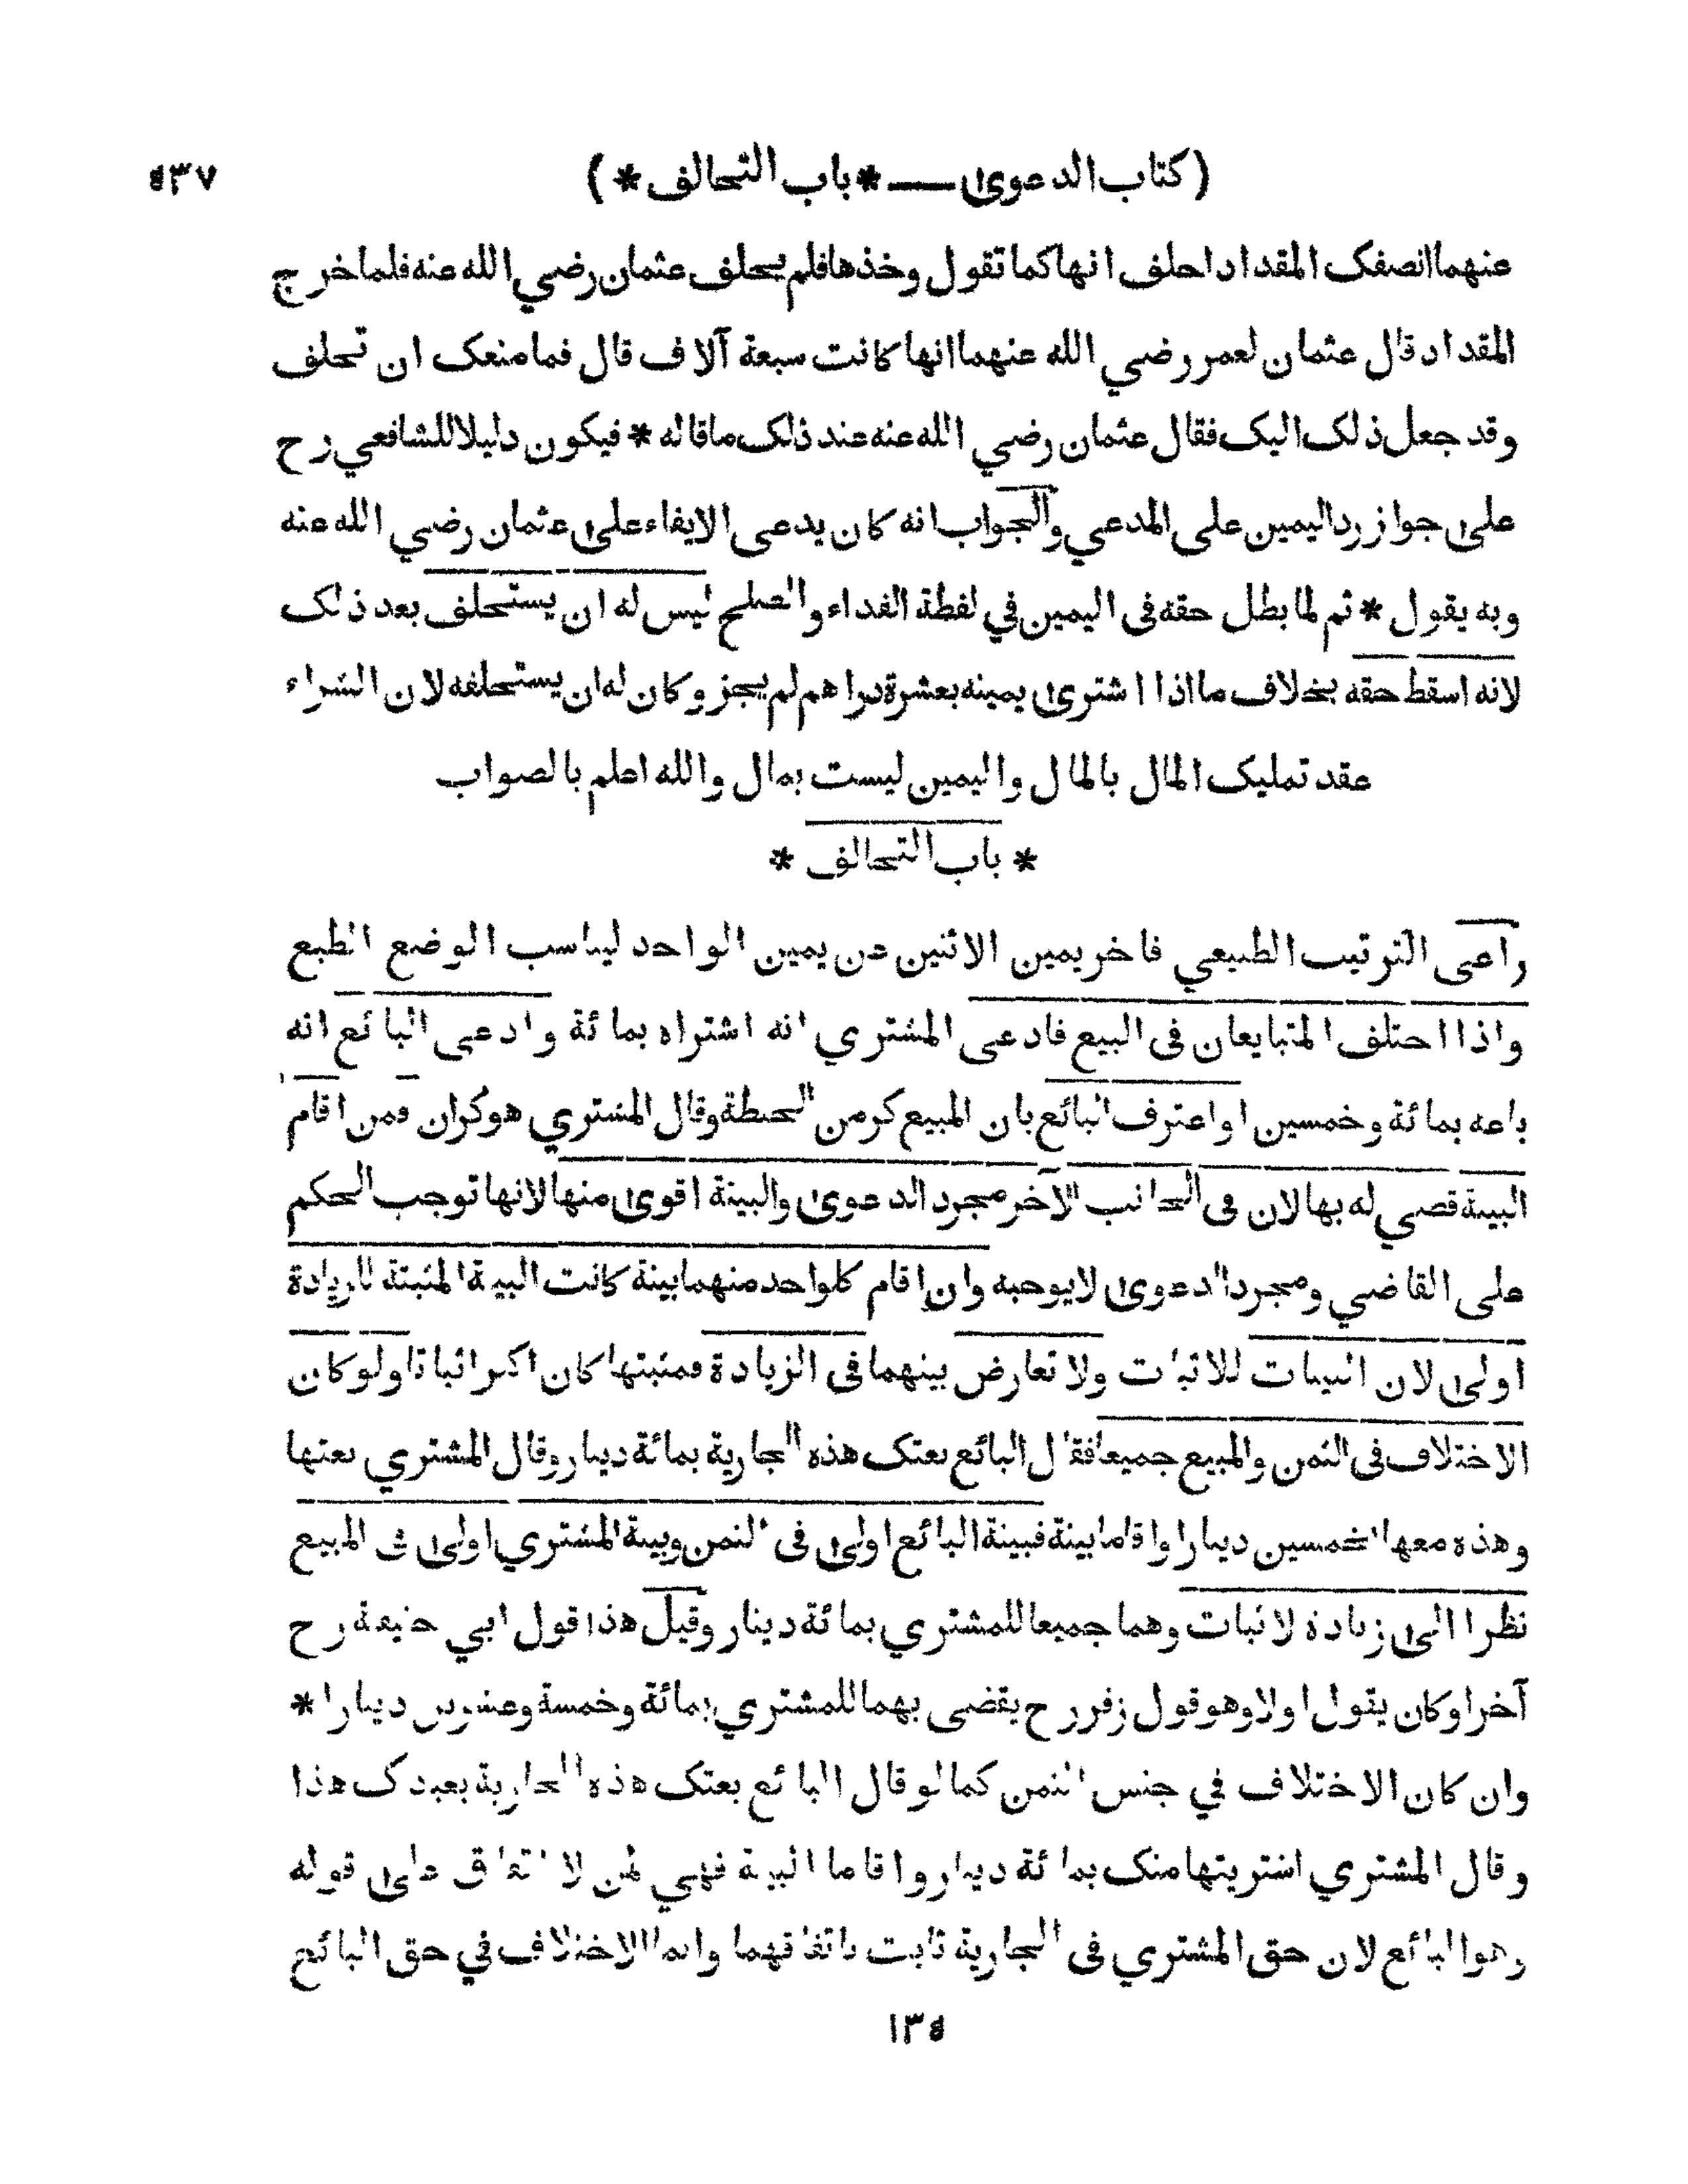 (كتاب الدعوى — * باب التحالف *) ٥٣٧
عنهما انصفك المقداد احلف انها كما تقول وخذها فلم يحلف عثمان رضي الله عنه فلما خرج
المقداد قال عثمان لعمر رضي الله عنهما انها كانت سبعة آلاف قال فما منعك ان تحلف
وقد جعل ذلك اليك فقال عثمان رضي الله عنه عند ذلك ما قاله * فيكون دليلا للشافعي رح
على جواز رد اليمين على المدعي والجواب انه كان يدعى الايفاء على عثمان رضي الله عنه
وبه يقول * ثم لما بطل حقه فى اليمين في لفظة الفداء والصلح ليس له ان يستحلف بعد ذلك
لانه اسقط حقه بخلاف ما اذا اشترى يمينه بعشرة دراهم لم يجز وكان له ان يستحلفه لان الشراء
عقد تمليك المال بالمال واليمين ليست بمال والله اعلم بالصواب
* باب التحالف *
راعى الترتيب الطبيعي فاخر يمين الاثنين عن يمين الواحد ليناسب الوضع الطبع
واذا اختلف المتبايعان فى البيع فادعى المشتري انه اشتراه بمائة وادعى البائع انه
باعه بمائة وخمسين او اعترف البائع بان المبيع كر من الحنطة وقال المشتري هو كران فمن اقام
البينة قضي له بها لان فى الجانب الآخر مجرد الدعوى والبينة اقوى منها لانها توجب الحكم
على القاضي ومجرد الدعوى لا يوجبه وان اقام كل واحد منهما بينة كانت البينة المثبتة للزيادة
اولى لان البينات للاثبات ولا تعارض بينهما فى الزيادة فمثبتها كان اكثر اثباتا ولو كان
الاختلاف فى الثمن والمبيع جميعا فقال البائع بعتك هذه الجارية بمائة دينار وقال المشتري بعتنها
وهذه معها بخمسين دينارا واقاما بينة فبينة البائع اولى فى الثمن وبينة المشتري اولى فى المبيع
نظرا الى زيادة الاثبات وهما جميعا للمشتري بمائة دينار وقيل هذا قول ابي حنيفة رح
آخرا وكان يقول اولا وهو قول زفر رح يقضى بهما للمشتري بمائة وخمسة وعشرين دينارا *
وان كان الاختلاف في جنس الثمن كما لو قال البائع بعتك هذه الجارية بعبدك هذا
وقال المشتري اشتريتها منك بمائة دينار واقاما البينة فهي لمن لا اتفاق على قوله
وهو البائع لان حق المشتري فى الجارية ثابت باتفاقهما وانما الاختلاف في حق البائع
١٣٥